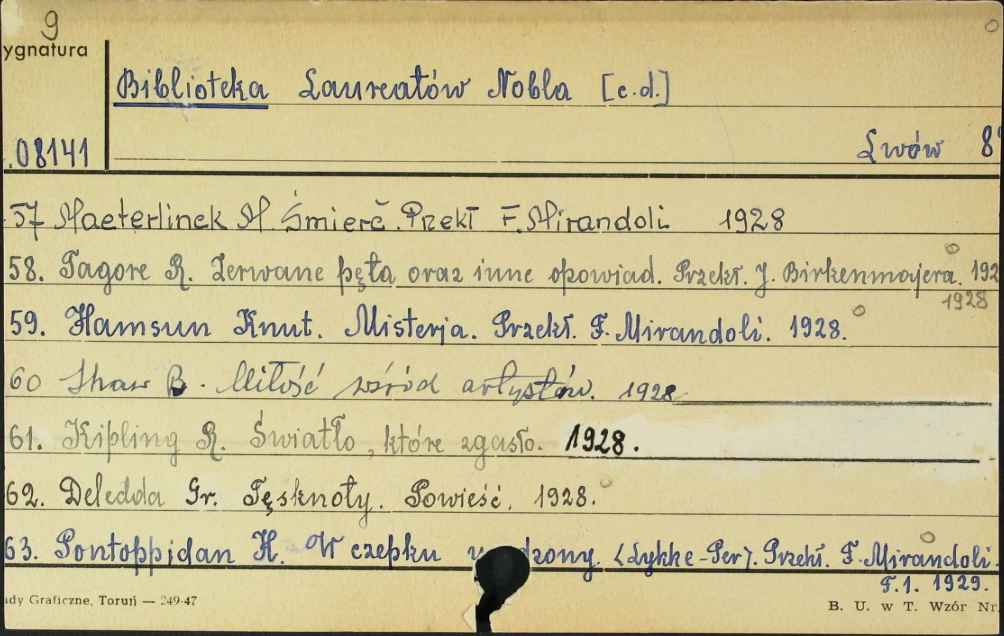 9
ygnatura
Biblioteka Laureatów Nobla [c.d.]
.08141
Lwów 8°
57 Maeterlinck M. Śmierć. Przekł F. Mirandoli 1928
58. Tagore R. Zerwane pęta oraz inne opowiad. Przekł. J. Birkenmajera. 192
1928
59. Hamsun Knut. Misterja. Przekł. F. Mirandoli. 1928.
60 Shaw B. Miłość wśród artystów. 1928
61. Kipling R. Światło, które zgasło. 1928.
62. Deledda Gr. Tęsknoty. Powieść. 1928.
63. Pontoppidan H. W czepku dzony. (Lykke-Per). Przekł. F. Mirandoli.
T.1. 1929.
ady Graficzne, Toruń — 249-47
B. U. w T. Wzór Nr